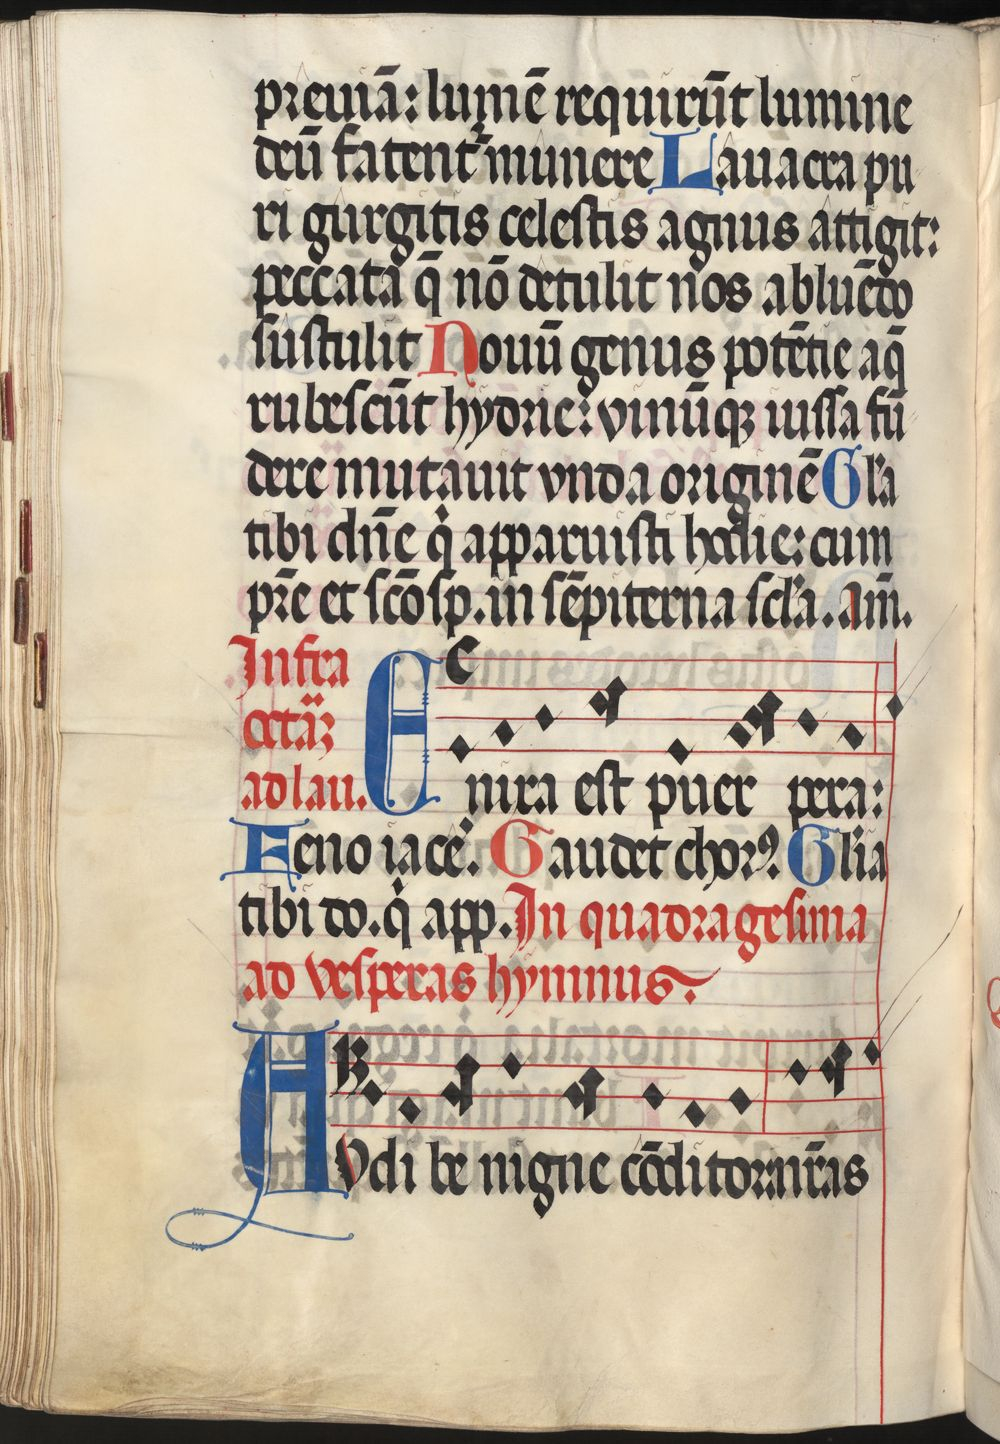 preuiā: lumē requirūt lumine
deū fatent᷑ munere Lauacra pu
ri gurgitis celestis agnus attigit:
peccata q̄ nō detulit nos abluēdo
sustulit Nouū genus potētie aq̄
rubescūt hydrie: vinūqꝫ iussa fū
dere mutauit vnda originē Gl'a
tibi dn̄e q̇ apparuisti hodie: cum
pr̄e et scōsp. in sēpiterna scl'a. Am̄.
Infra
octāꝝ
ad lau.
Enixa est puer pera:
Feno iace'. Gaudet chorꝰ. Gl'ia
tibi do. q̇ app. In quadragesima
ad vesperas hymnus.
AVdi be nigne cōditor nr̄as